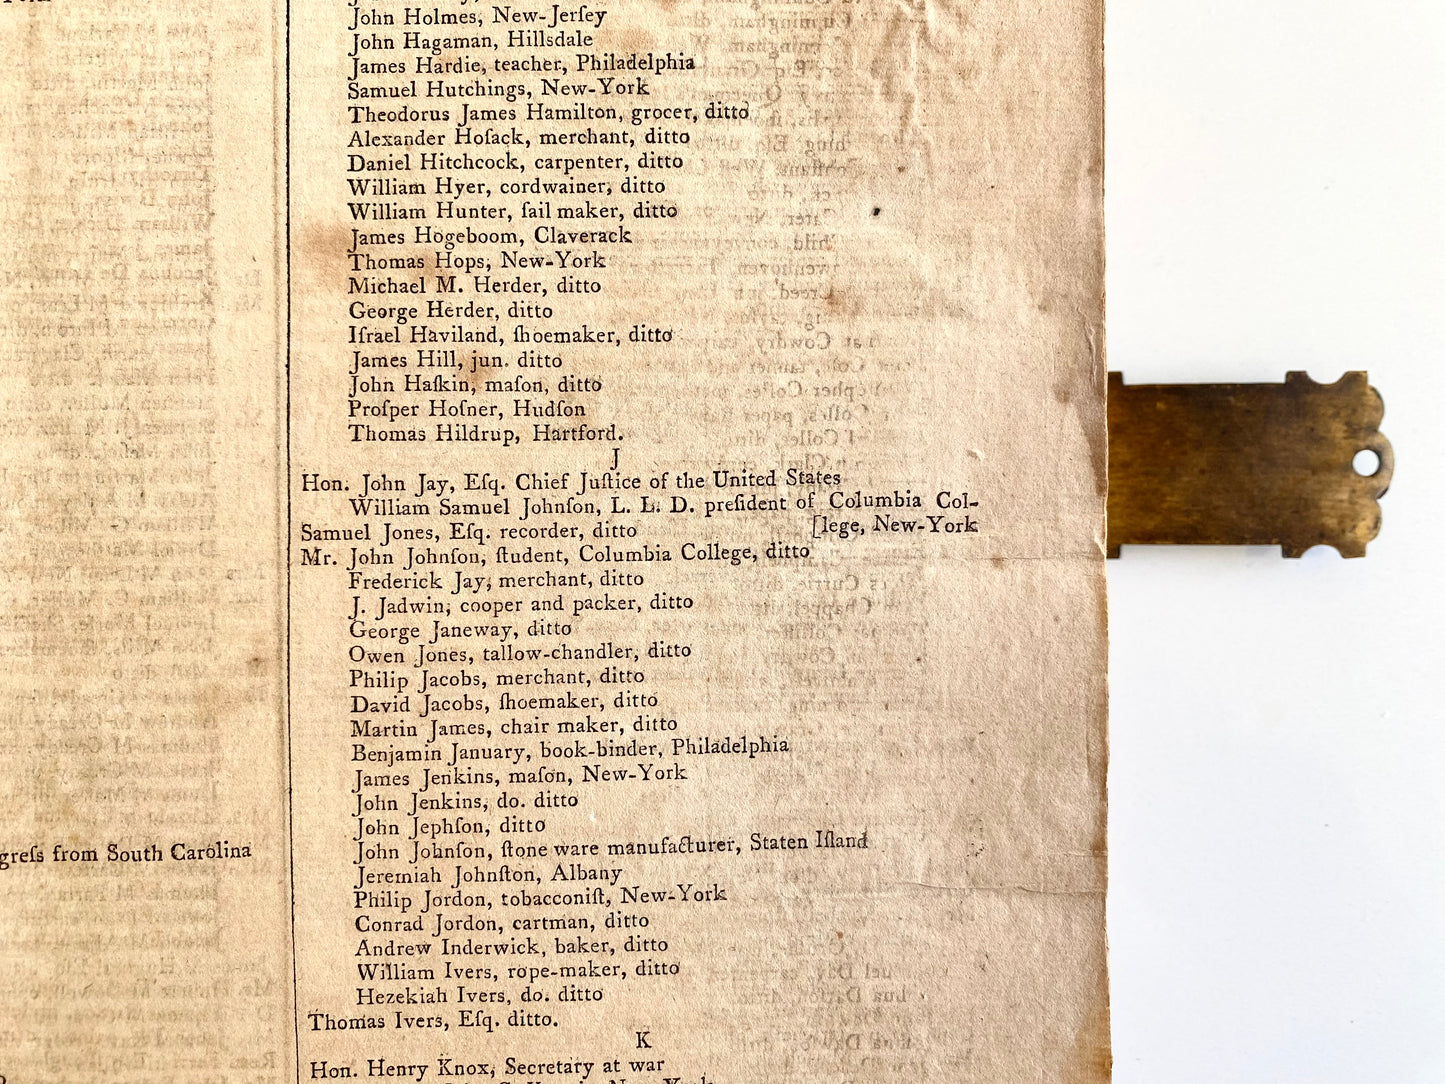 John Holmes, New-Jerſey
John Hagaman, Hillsdale
James Hardie, teacher, Philadelphia
Samuel Hutchings, New-York
Theodorus James Hamilton, grocer, ditto
Alexander Hoſack, merchant, ditto
Daniel Hitchcock, carpenter, ditto
William Hyer, cordwainer, ditto
William Hunter, ſail maker, ditto
James Hogeboom, Claverack
Thomas Hops, New-York
Michael M. Herder, ditto
George Herder, ditto
Iſrael Haviland, ſhoemaker, ditto
James Hill, jun. ditto
John Haſkin, maſon, ditto
Proſper Hoſner, Hudſon
Thomas Hildrup, Hartford.
J
Hon. John Jay, Eſq. Chief Juſtice of the United States
William Samuel Johnſon, L. L. D. preſident of Columbia Col-
Samuel Jones, Eſq. recorder, ditto [lege, New-York
Mr. John Johnſon, ſtudent, Columbia College, ditto
Frederick Jay, merchant, ditto
J. Jadwin, cooper and packer, ditto
George Janeway, ditto
Owen Jones, tallow-chandler, ditto
Philip Jacobs, merchant, ditto
David Jacobs, ſhoemaker, ditto
Martin James, chair maker, ditto
Benjamin January, book-binder, Philadelphia
James Jenkins, maſon, New-York
John Jenkins, do. ditto
John Jephſon, ditto
John Johnſon, ſtone ware manufacturer, Staten Iſland
Jeremiah Johnſton, Albany
Philip Jordon, tobacconiſt, New-York
Conrad Jordon, cartman, ditto
Andrew Inderwick, baker, ditto
William Ivers, rope-maker, ditto
Hezekiah Ivers, do. ditto
Thomas Ivers, Eſq. ditto.
K
Hon. Henry Knox, Secretary at war
greſs from South Carolina